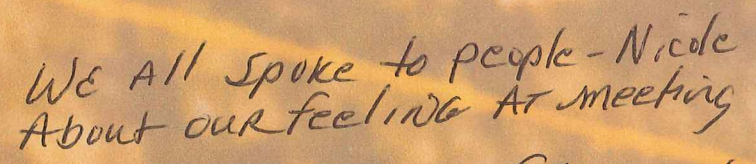 We All Spoke to people - Nicole
About our feeling At meeting